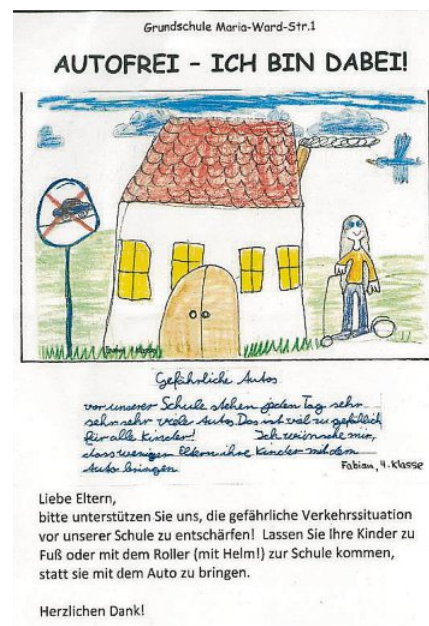 Grundschule Maria-Ward-Str.1
AUTOFREI - ICH BIN DABEI!
Gefährliche Autos
vor unserer Schule stehen jeden Tag sehr
sehr sehr viele Autos. Das ist viel zu gefählich
für alle Kinder! Ich wünsche mir,
dass weniger Eltern ihre Kinder mit dem
Auto bringen
Fabian, 4. Klasse
Liebe Eltern,
bitte unterstützen Sie uns, die gefährliche Verkehrssituation
vor unserer Schule zu entschärfen! Lassen Sie Ihre Kinder zu
Fuß oder mit dem Roller (mit Helm!) zur Schule kommen,
statt sie mit dem Auto zu bringen.
Herzlichen Dank!